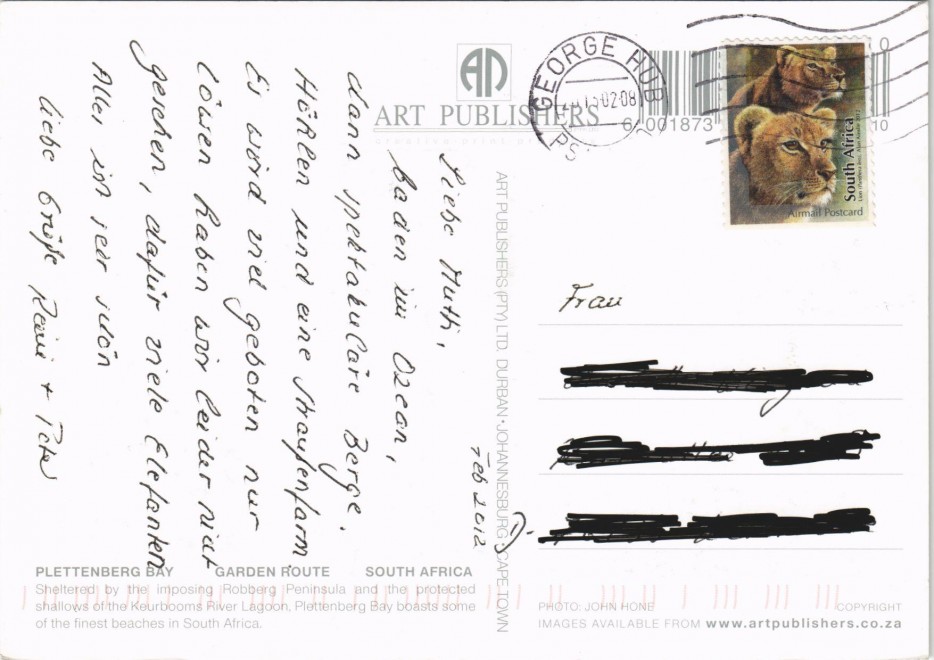 Feb 2012
Liebe Mutti,
baden im Ozean,
dann spektakuläre Berge.
Höhlen und eine Straußenfarm
Es wird viel geboten nur
Löwen haben wir leider nicht
gesehen, dafür viele Elefanten
Alles ist sehr schön
Liebe Grüße + Peter
ART PUBLISHERS
GEORGE HUB
02:08
6 001873
0
10
South Africa
Airmail Postcard
Frau
D-
ART PUBLISHERS (PTY) LTD. DURBAN · JOHANNESBURG · CAPE TOWN
PLETTENBERG BAY GARDEN ROUTE SOUTH AFRICA
Sheltered by the imposing Robberg Peninsula and the protected
shallows of the Keurbooms River Lagoon, Plettenberg Bay boasts some
of the finest beaches in South Africa.
PHOTO: JOHN HONE COPYRIGHT
IMAGES AVAILABLE FROM www.artpublishers.co.za